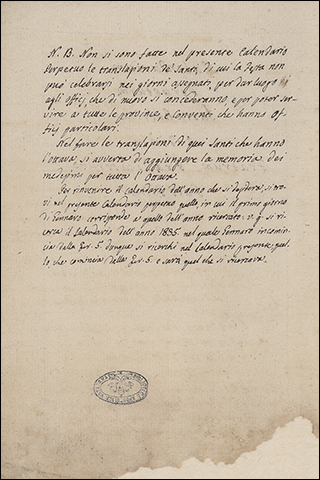 N. B. Non si sono fatte nel presente Calendario
Perpetuo le translazioni de' Santi, di cui la festa non
può celebrarsi nei giorni assegnati, per dar luogo
agli officj che di nuovo si concederanno, e per poter ser-
vire a tutte le province, e Conventi che hanno Of-
ficj particolari.
Nel fare le translazioni di quei Santi che hanno
l'ottava, si avverta di aggiungere la memoria dei
medesimi per tutta l'Ottava.
Per rinvenire il calendario dell'anno che si desidera, si tro-
vi nel presente Calendario perpetuo quello, in cui il primo giorno
di Gennaro corrisponde a quello dell'anno ricercato: v. g. si ri-
cerca il Calendario dell'anno 1835 nel quale Gennaro incomin-
cia dalla fer. 5. dunque si ricerchi nel Calendario presente quel-
lo che comincia dalla fer. 5. e sarà quel che si ricercava.